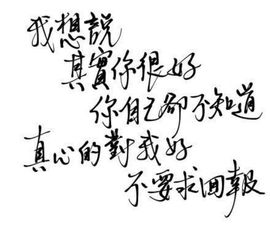 我想說
其實你很好
你自己卻不知道
真心的對我好
不要求回報